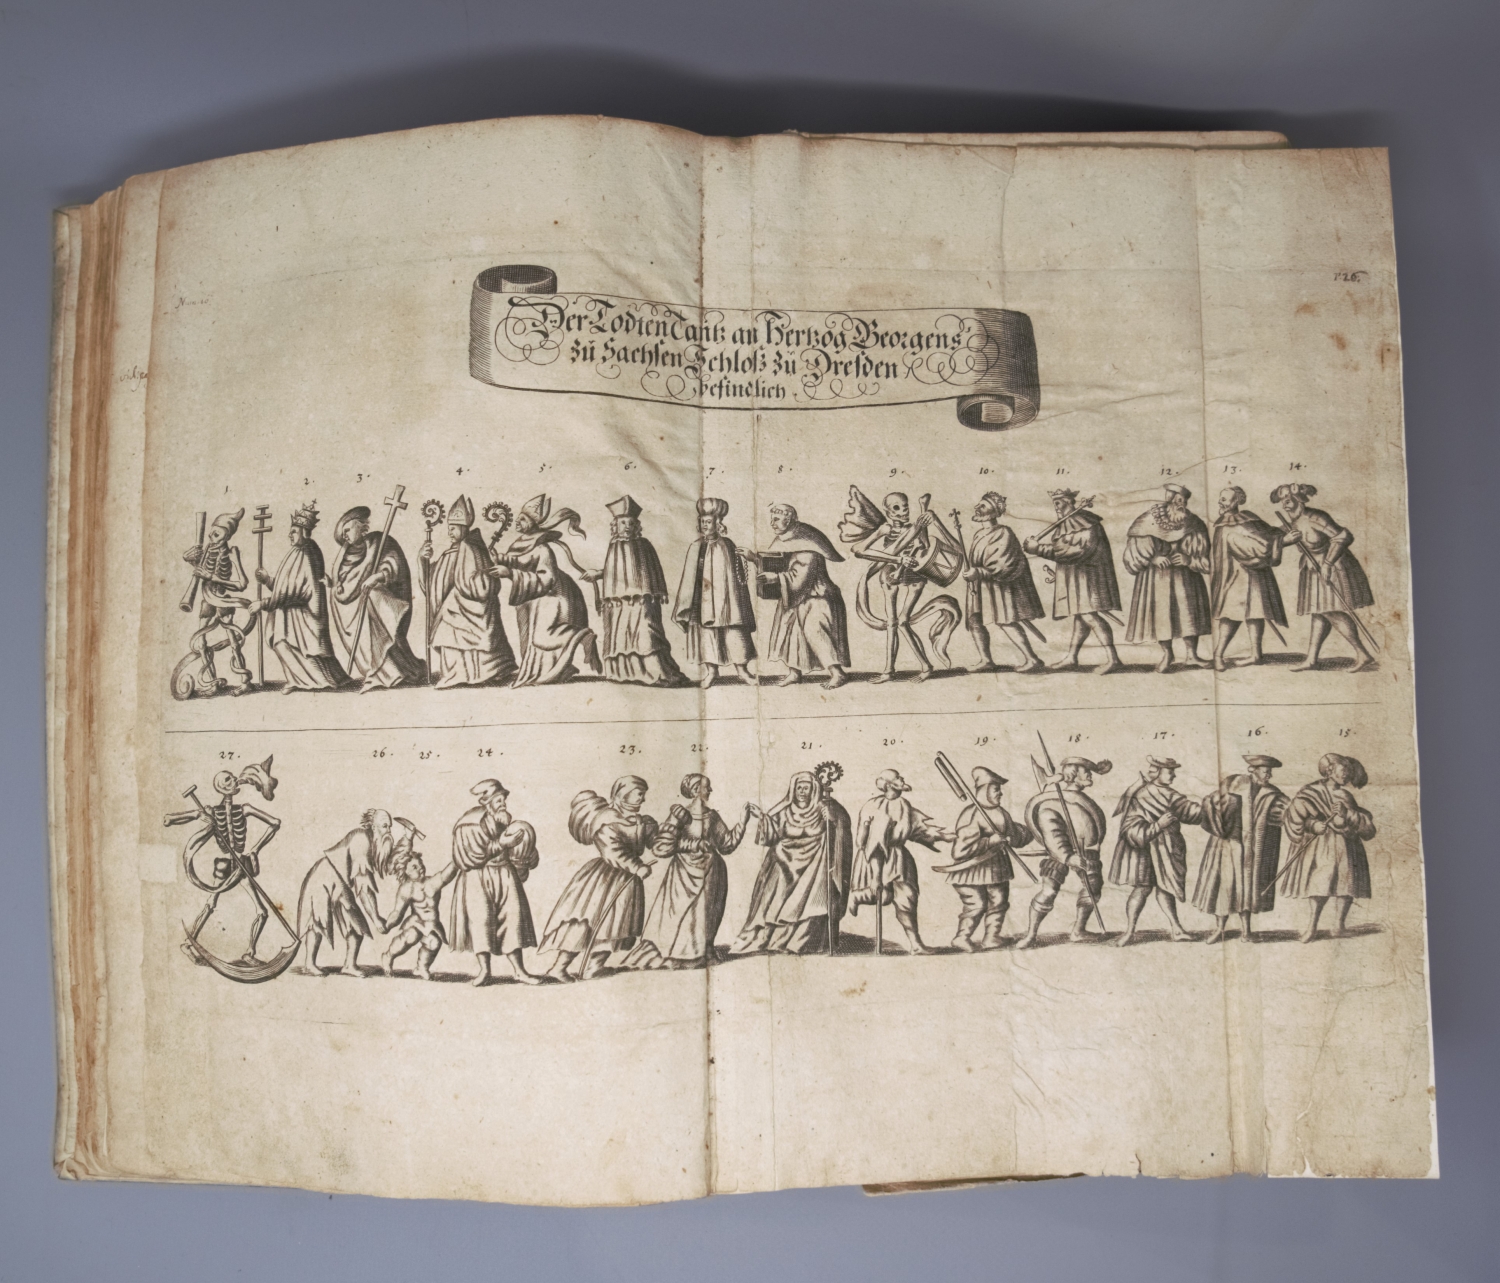 P 26.
Der Todten Tantz an Hertzog Georgens
zů Sachsen Schloß zů Dresden
befindlich
1 2. 3. 4. 5. 6. 7. 8. 9. 10. 11. 12. 13. 14.
27. 26. 25. 24. 23. 22. 21. 20. 19. 18. 17. 16. 15.